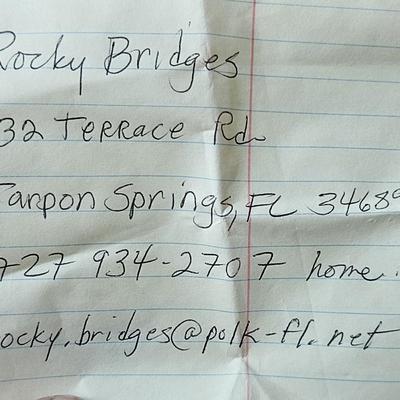 Rocky Bridges
32 Terrace Rd
Tarpon Springs, FL 34689
727 934-2707 home.
ocky.bridges@polk-fl.net